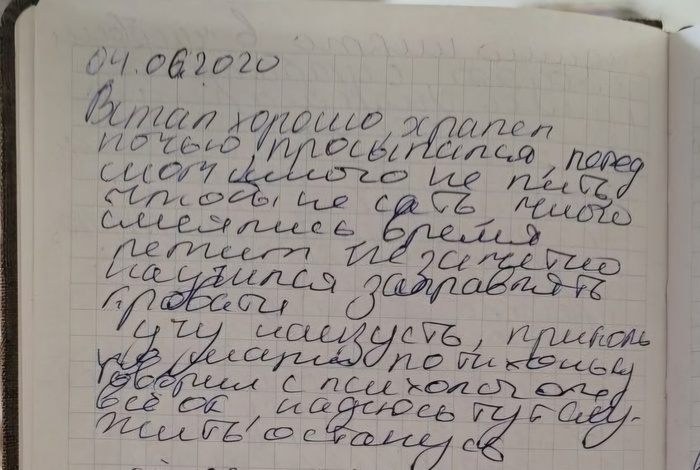 04.06.2020
Встал хорошо, храпел
ночью, просыпался, перед
сном много не пить
чтобы не сать, много
смеялись время
летит незаметно
научился заправлять
кровати
учу наизусть, приколь
но, по тихоньку
говорил с психологом,
всё ок, надеюсь тут слу-
жить останусь